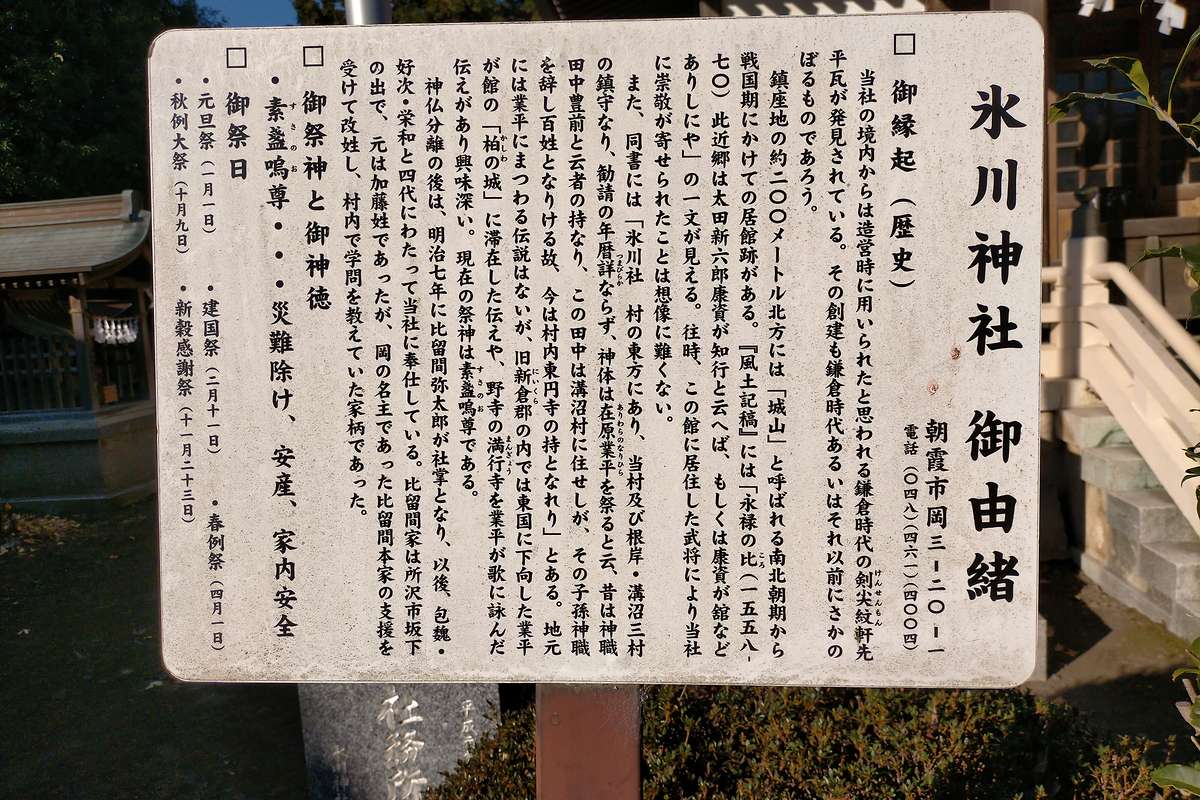 氷川神社 御由緒
朝霞市岡三-二〇-一
電話(〇四八)(四六一)(四〇〇四)
□ 御縁起(歴史)
当社の境内からは造営時に用いられたと思われる鎌倉時代の剣尖紋軒先
平瓦が発見されている。その創建も鎌倉時代あるいはそれ以前にさかの
ぼるものであろう。
鎮座地の約二〇〇メートル北方には「城山」と呼ばれる南北朝期から
戦国期にかけての居館跡がある。『風土記稿』には「永禄の比(一五五八-
七〇)此近郷は太田新六郎康資が知行と云へば、もしくは康資が舘など
ありしにや」の一文が見える。往時、この館に居住した武将により当社
に崇敬が寄せられたことは想像に難くない。
また、同書には「氷川社 村の東方にあり、当村及び根岸・溝沼三村
の鎮守なり、勧請の年暦詳ならず、神体は在原業平を祭ると云、昔は神職
田中豊前と云者の持なり、この田中は溝沼村に住せしが、その子孫神職
を辞し百姓となりける故、今は村内東円寺の持となれり」とある。地元
には業平にまつわる伝説はないが、旧新倉郡の内では東国に下向した業平
が館の「柏の城」に滞在した伝えや、野寺の満行寺を業平が歌に詠んだ
伝えがあり興味深い。現在の祭神は素盞嗚尊である。
神仏分離の後は、明治七年に比留間弥太郎が社掌となり、以後、包魏・
好次・栄和と四代にわたって当社に奉仕している。比留間家は所沢市坂下
の出で、元は加藤姓であったが、岡の名主であった比留間本家の支援を
受けて改姓し、村内で学問を教えていた家柄であった。
□ 御祭神と御神徳
・素盞嗚尊・・・災難除け、安産、家内安全
□ 御祭日
・元旦祭(一月一日) ・建国祭(二月十一日) ・春例祭(四月一日)
・秋例大祭(十月九日) ・新穀感謝祭(十一月二十三日)
社務所